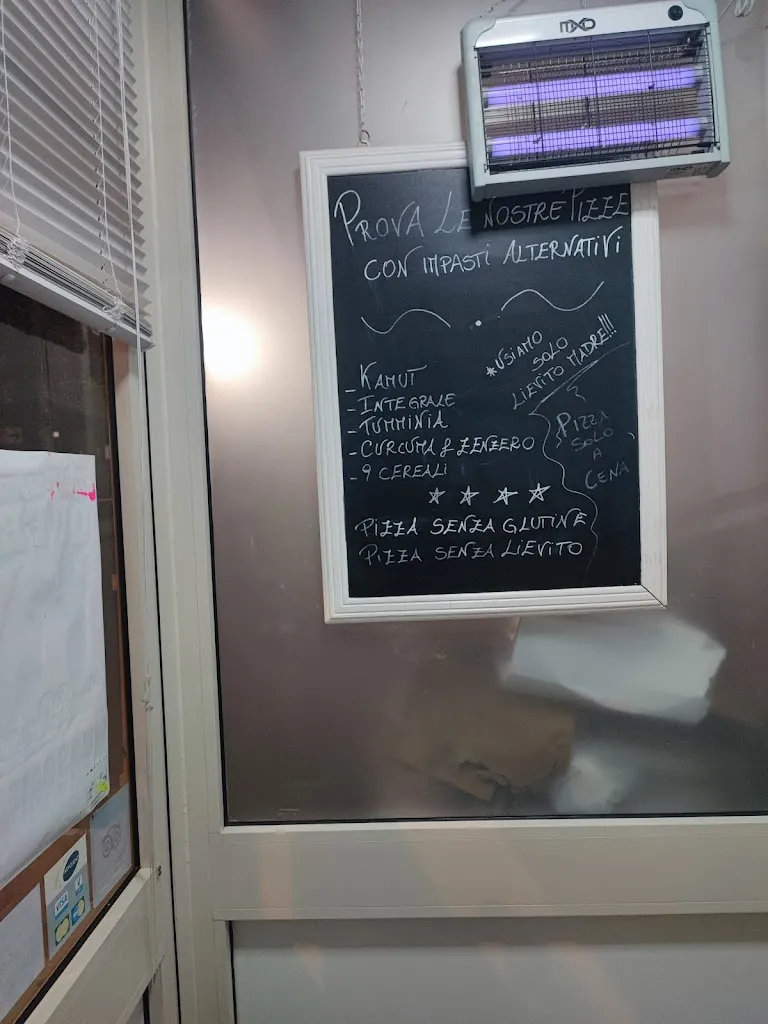 MXD
PROVA LE NOSTRE PIZZE
CON IMPASTI ALTERNATIVI
*USIAMO
SOLO
LIEVITO MADRE!!!
- KAMUT
- INTEGRALE
- TUMMINIA
- CURCUMA & ZENZERO
- 9 CEREALI
PIZZA
SOLO
A
CENA
PIZZA SENZA GLUTINE
PIZZA SENZA LIEVITO
VISA